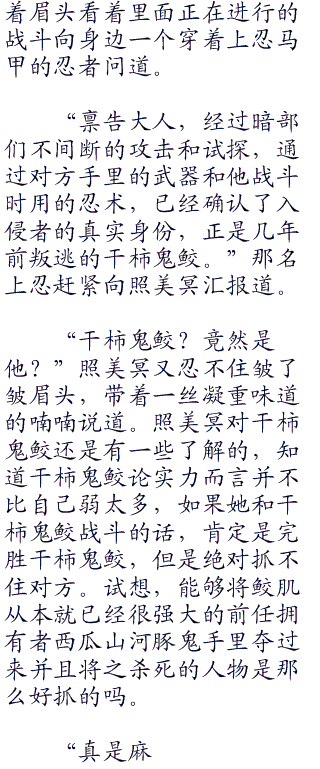 着眉头看着里面正在进行的
战斗向身边一个穿着上忍马
甲的忍者问道。
“禀告大人，经过暗部
们不间断的攻击和试探，通
过对方手里的武器和他战斗
时用的忍术，已经确认了入
侵者的真实身份，正是几年
前叛逃的干柿鬼鲛。”那名
上忍赶紧向照美冥汇报道。
“干柿鬼鲛？竟然是
他？”照美冥又忍不住皱了
皱眉头，带着一丝凝重味道
的喃喃说道。照美冥对干柿
鬼鲛还是有一些了解的，知
道干柿鬼鲛论实力而言并不
比自己弱太多，如果她和干
柿鬼鲛战斗的话，肯定是完
胜干柿鬼鲛，但是绝对抓不
住对方。试想，能够将鲛肌
从本就已经很强大的前任拥
有者西瓜山河豚鬼手里夺过
来并且将之杀死的人物是那
么好抓的吗。
“真是麻